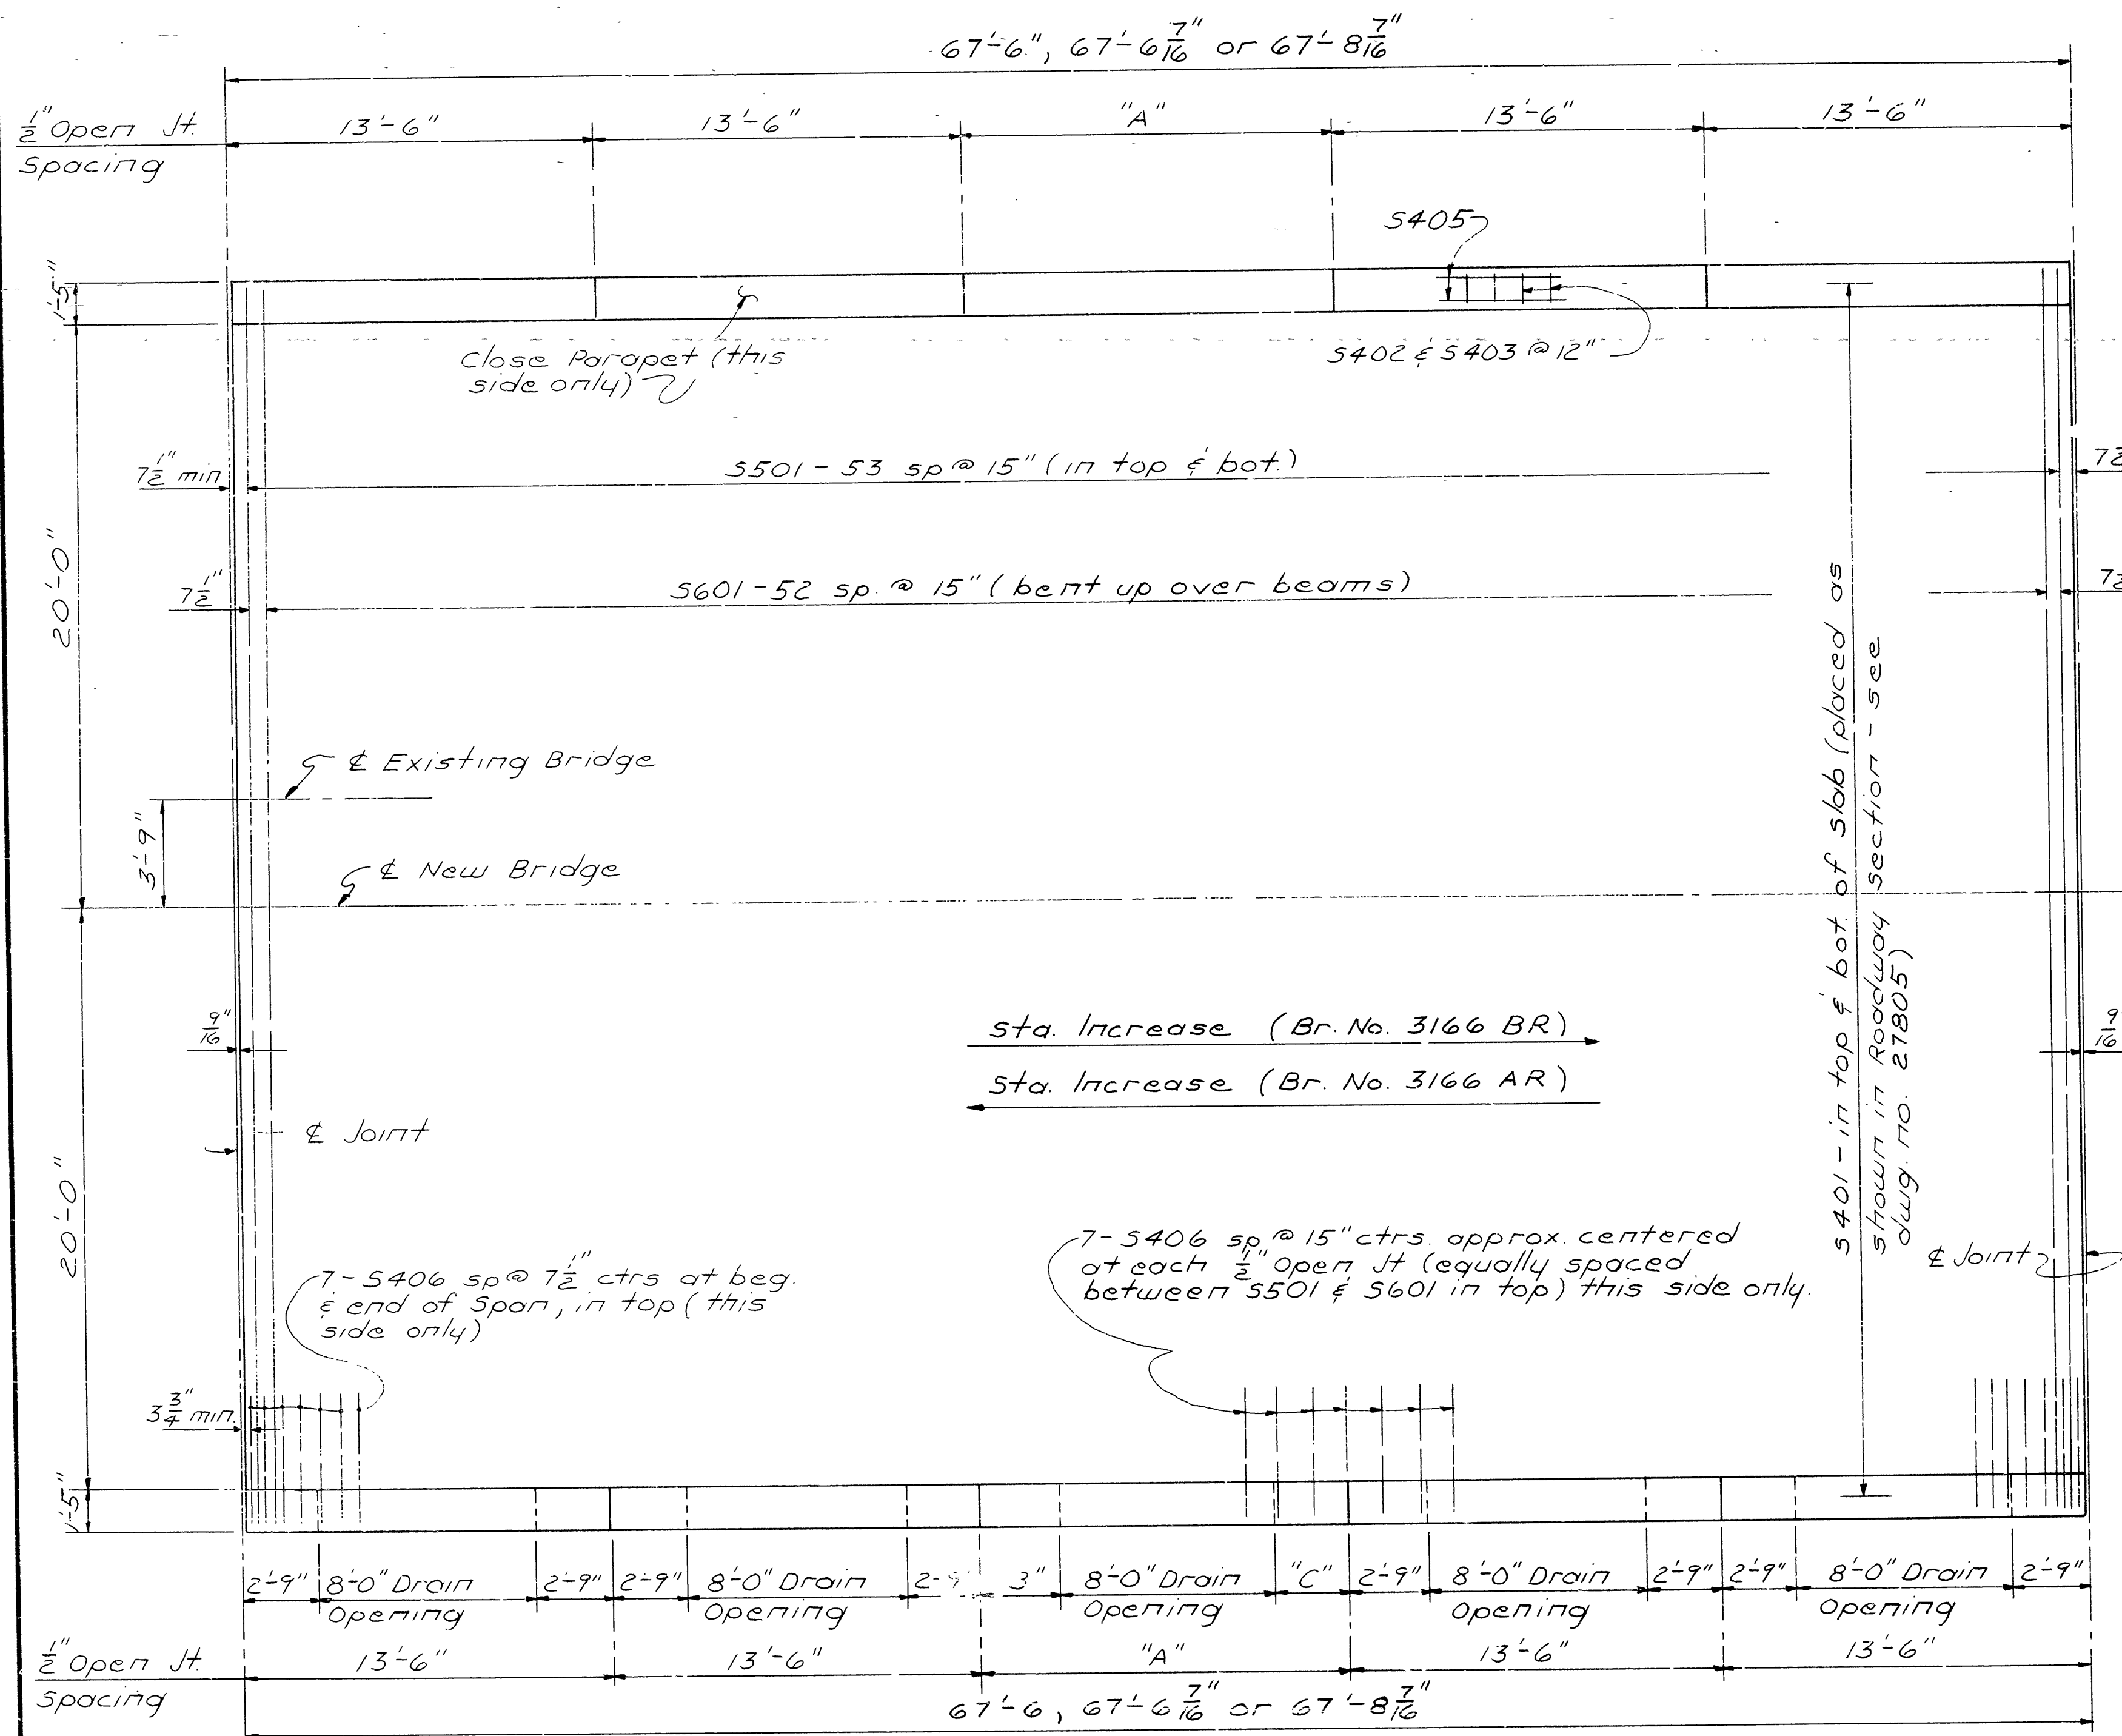 67'-6", 67'-6 7/16" or 67'-8 7/16"
1/2" Open Jt.
Spacing
13'-6"
13'-6"
"A"
13'-6"
13'-6"
S405
1'-5"
Close Parapet (this
side only)
S402 & S403 @ 12"
7 1/2" min
S501 - 53 sp @ 15" (in top & bot.)
20'-0"
7 1/2"
S601 - 52 sp. @ 15" (bent up over beams)
℄ Existing Bridge
3'-9"
℄ New Bridge
S401 - in top & bot. of slab (placed as
shown in Roadway section - see
dwg. no. 27805)
9/16"
Sta. Increase (Br. No. 3166 BR)
9/16
Sta. Increase (Br. No. 3166 AR)
℄ Joint
20'-0"
7-S406 sp @ 7 1/2" ctrs at beg.
& end of Span, in top (this
side only)
7-S406 sp @ 15" ctrs. approx. centered
at each 1/2" Open Jt (equally spaced
between S501 & S601 in top) this side only.
℄ Joint
3 3/4" min.
1'-5"
2'-9"
8'-0" Drain
Opening
2'-9"
2'-9"
8'-0" Drain
Opening
2'-9"
3"
8'-0" Drain
Opening
"C"
2'-9"
8'-0" Drain
Opening
2'-9"
2'-9"
8'-0" Drain
Opening
2'-9"
1/2" Open Jt.
Spacing
13'-6"
13'-6"
"A"
13'-6"
13'-6"
67'-6, 67'-6 7/16" or 67'-8 7/16"